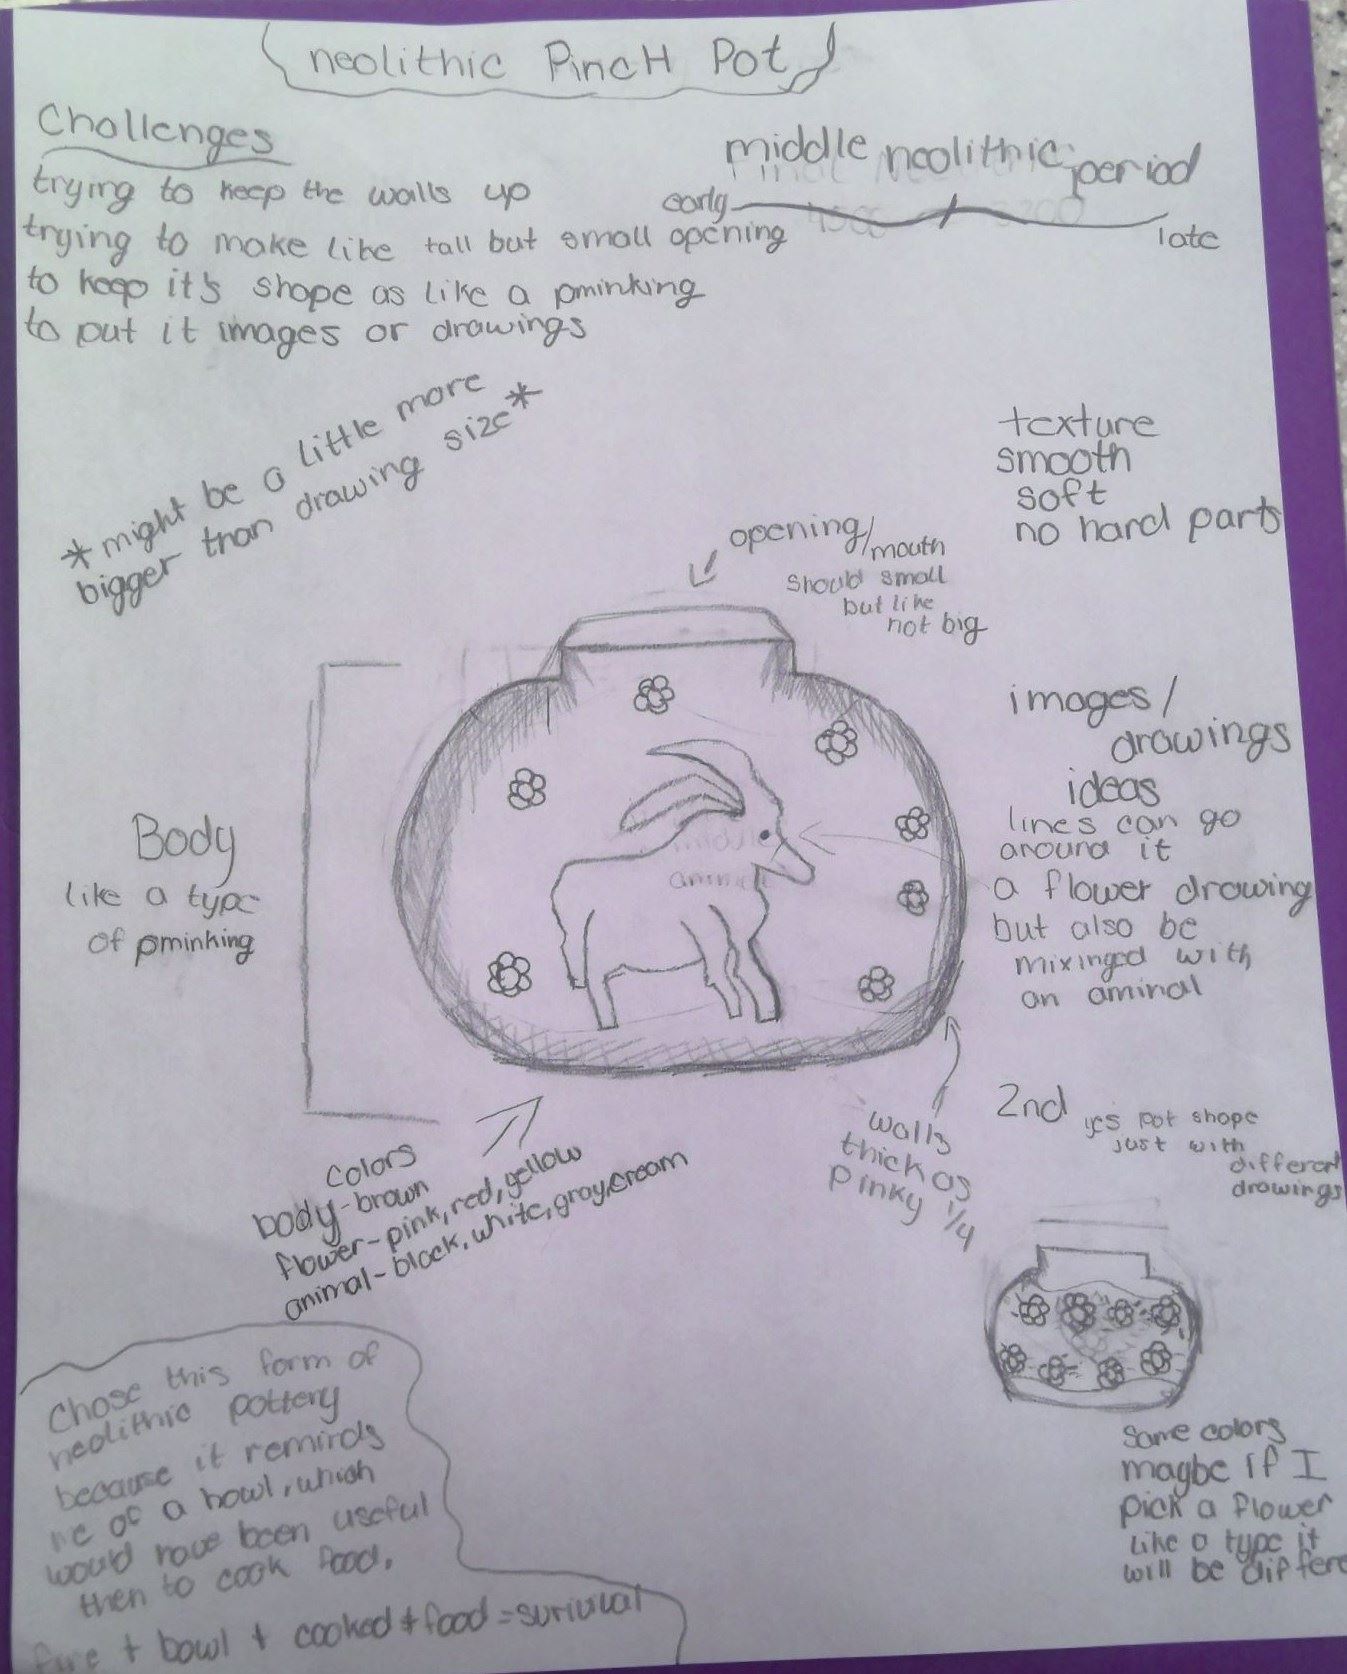 neolithic PincH Pot
Challenges
trying to keep the walls up
trying to make like tall but small opening
to keep it's shape as like a pminking
to put it images or drawings
middle neolithic period
early
late
*might be a little more
bigger than drawing size*
texture
smooth
soft
no hard parts
opening/
mouth
should small
but like
not big
images/
drawings
ideas
lines can go
around it
a flower drawing
but also be
mixinged with
an aminal
Body
like a type
of pminking
middle
colors
body-brown
flower-pink, red, yellow
animal-black, white, gray, cream
walls
thick as
pinky 1/4
2nd
yes pot shape
just with
different
drawings
same colors
maybe if I
pick a flower
like a type it
will be differe
Chose this form of
neolithic pottery
because it reminds
me of a bowl, which
would have been useful
then to cook food.
+ bowl + cooked + food = surivual